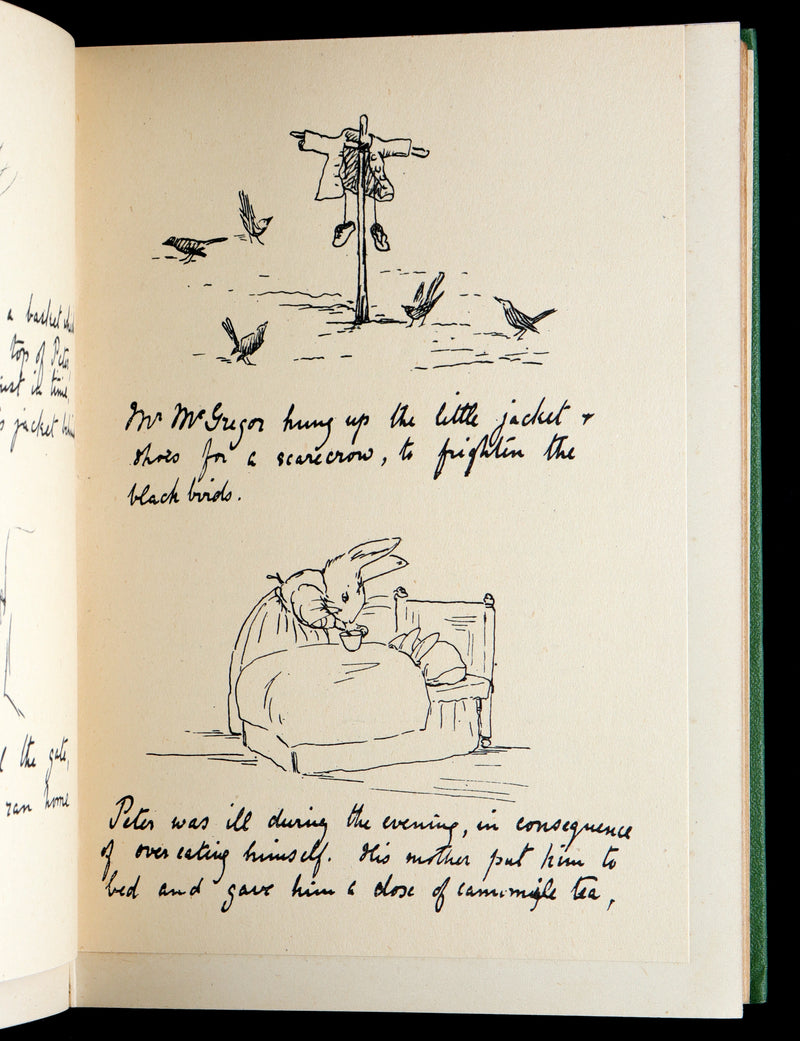 a basket
top of Peter,
just in time,
's jacket behind
the gate,
ran home
Mr McGregor hung up the little jacket +
shoes for a scarecrow, to frighten the
black birds.
Peter was ill during the evening, in consequence
of over eating himself. His mother put him to
bed and gave him a dose of camomile tea,